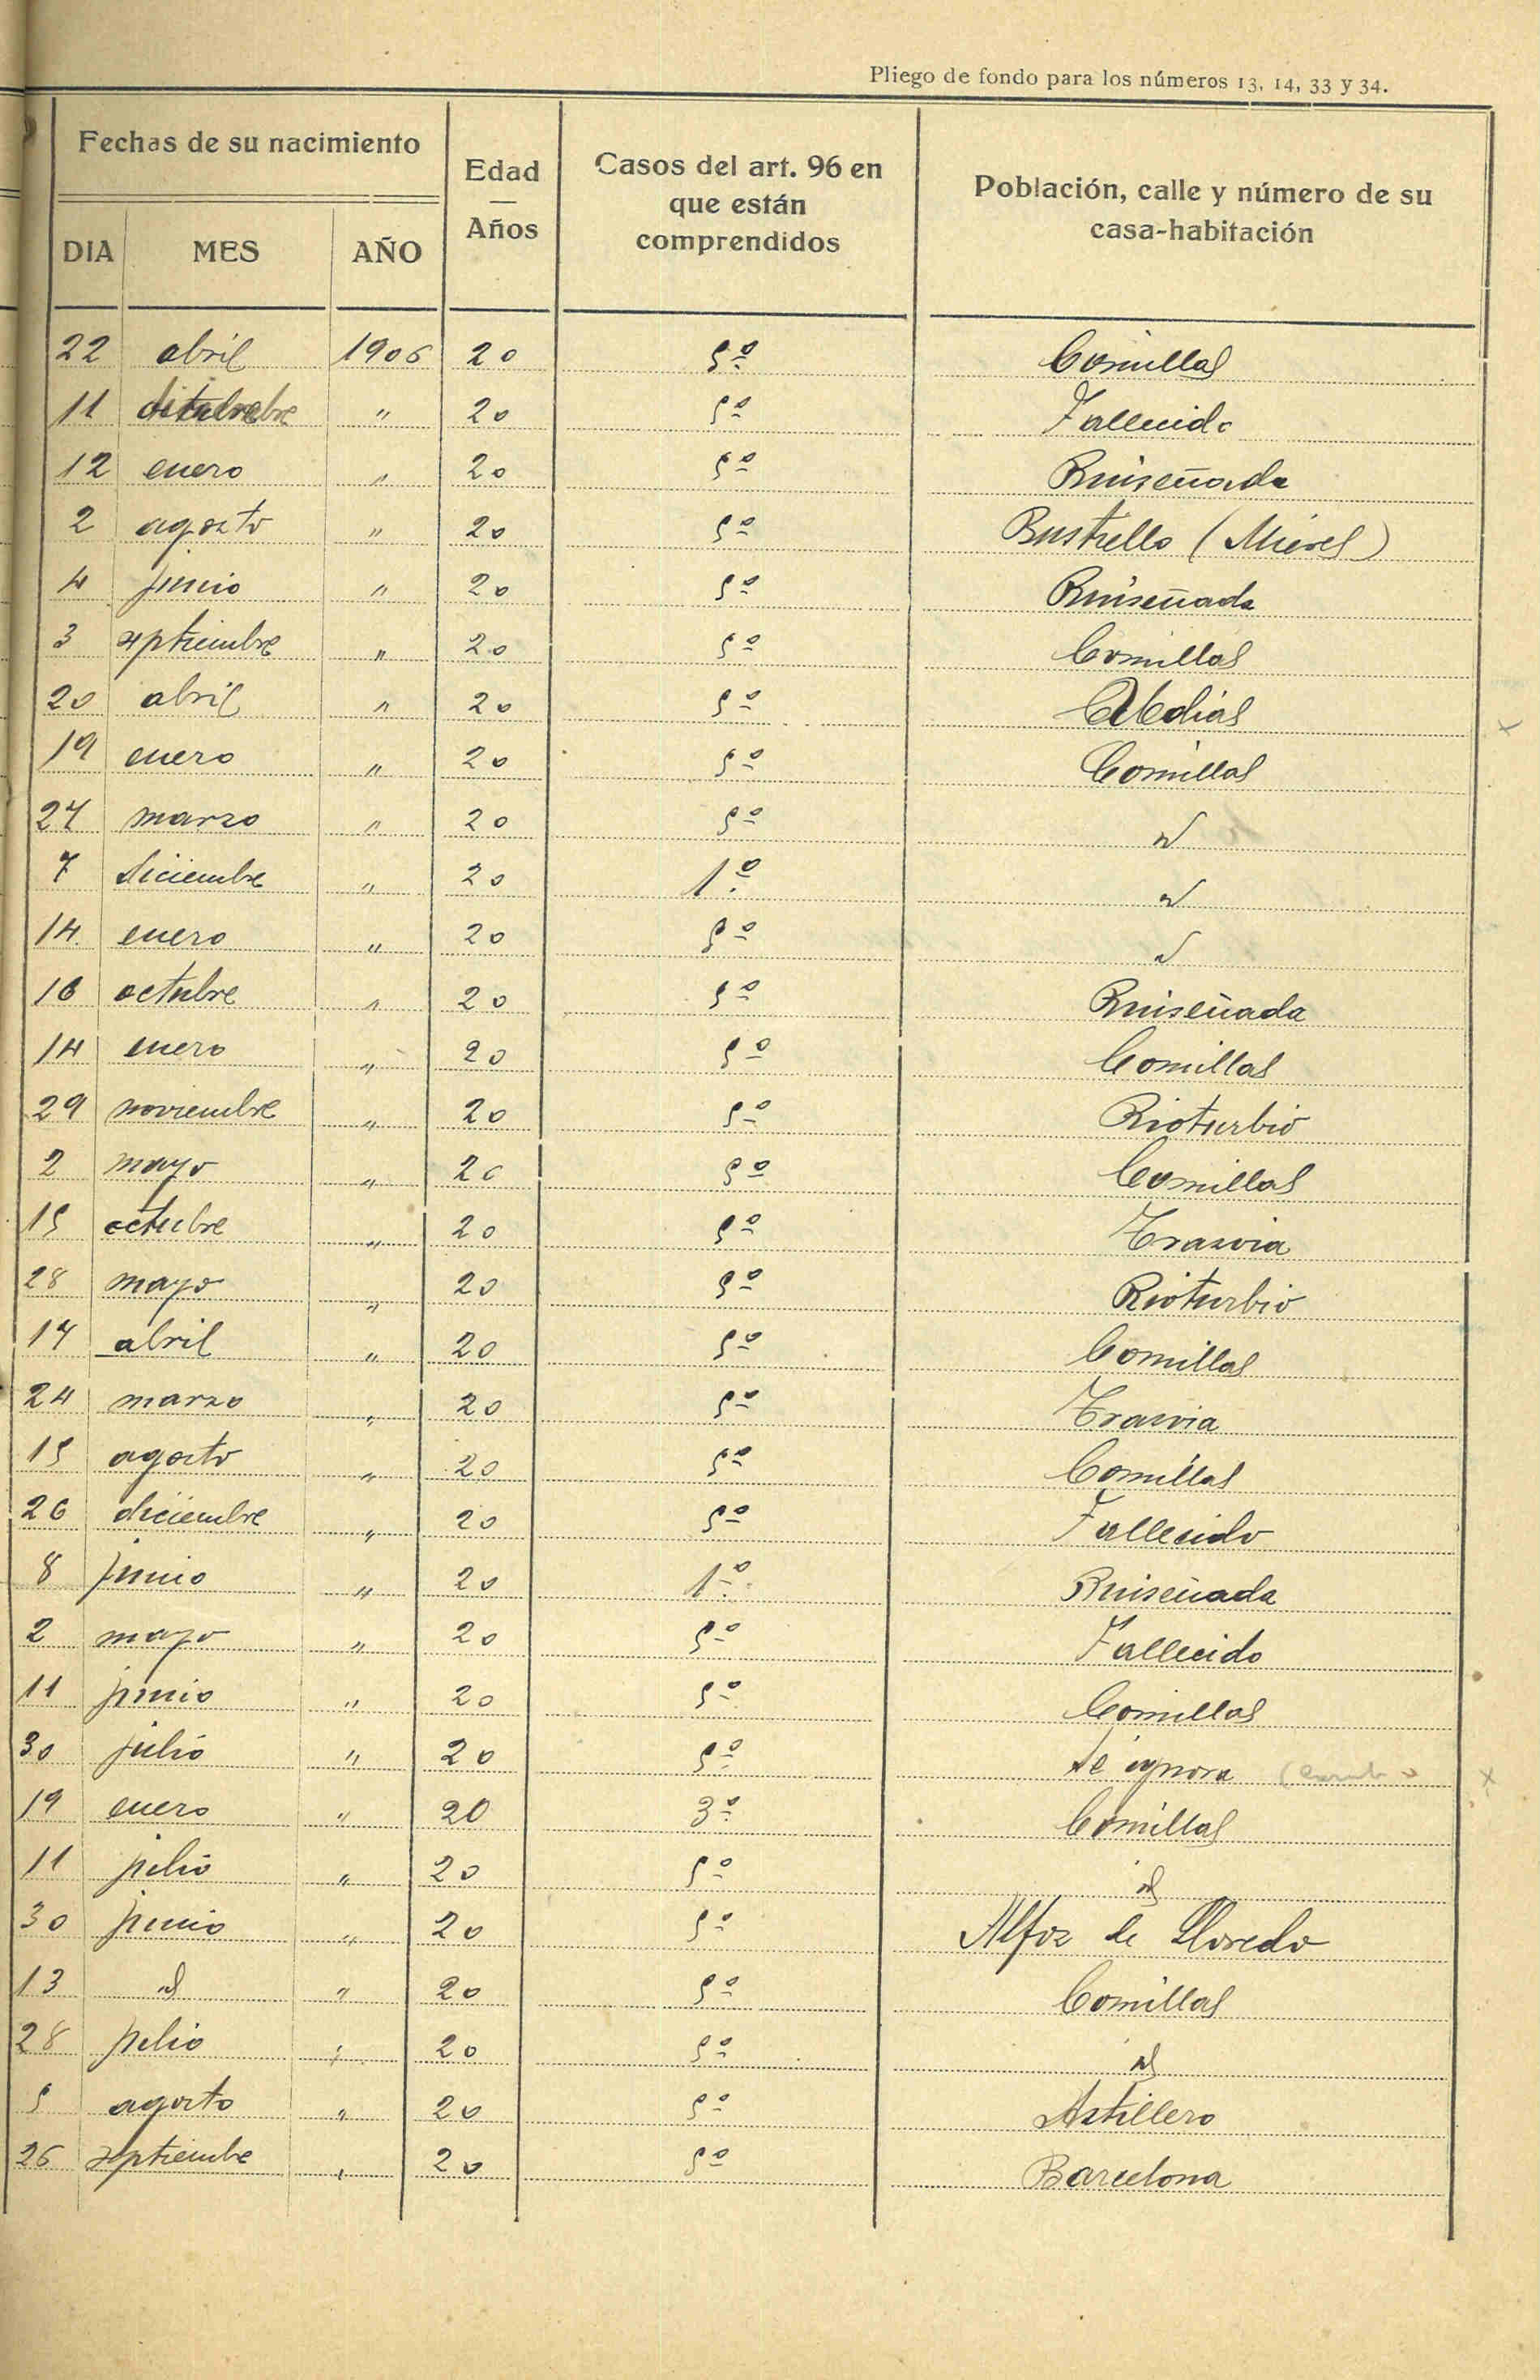 Pliego de fondo para los números 13, 14, 33 y 34.
Fechas de su nacimiento
Edad
—
Años
Casos del art. 96 en
que están
comprendidos
Población, calle y número de su
casa-habitación
DIA MES AÑO
22 abril 1906 20 5º Comillas
11 " 20 5º Fallecido
12 enero " 20 5º Ruiseñada
2 agosto " 20 5º Bustiello (Mieres)
4 junio " 20 5º Ruiseñada
3 septiembre " 20 5º Comillas
20 abril " 20 5º
19 enero " 20 5º Comillas
27 marzo " 20 5º id
7 diciembre " 20 1º id
14 enero " 20 5º id
16 octubre " 20 5º Ruiseñada
14 enero " 20 5º Comillas
29 noviembre " 20 5º Rioturbio
2 mayo " 20 5º Comillas
15 octubre " 20 5º Trasvia
28 mayo " 20 5º Rioturbio
17 abril " 20 5º Comillas
24 marzo " 20 5º Trasvia
15 agosto " 20 5º Comillas
26 diciembre " 20 5º Fallecido
8 junio " 20 1º Ruiseñada
2 mayo " 20 5º Fallecido
11 junio " 20 5º Comillas
30 julio " 20 5º Se ignora
19 enero " 20 3º Comillas
11 julio " 20 5º id
30 junio " 20 5º Alfoz de Lloredo
13 id " 20 5º Comillas
28 julio " 20 5º id
5 agosto " 20 5º Astillero
26 septiembre " 20 5º Barcelona